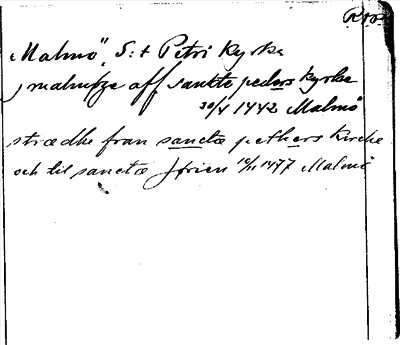 R 10
„Malmö", S:t Petri kyrka
j malmøze aff sancte peders kyrke
30/4 1442 Malmö
strædhe fran sancta pethers kirche
och til sanctæ Jfrien 10/11 1477 Malmö